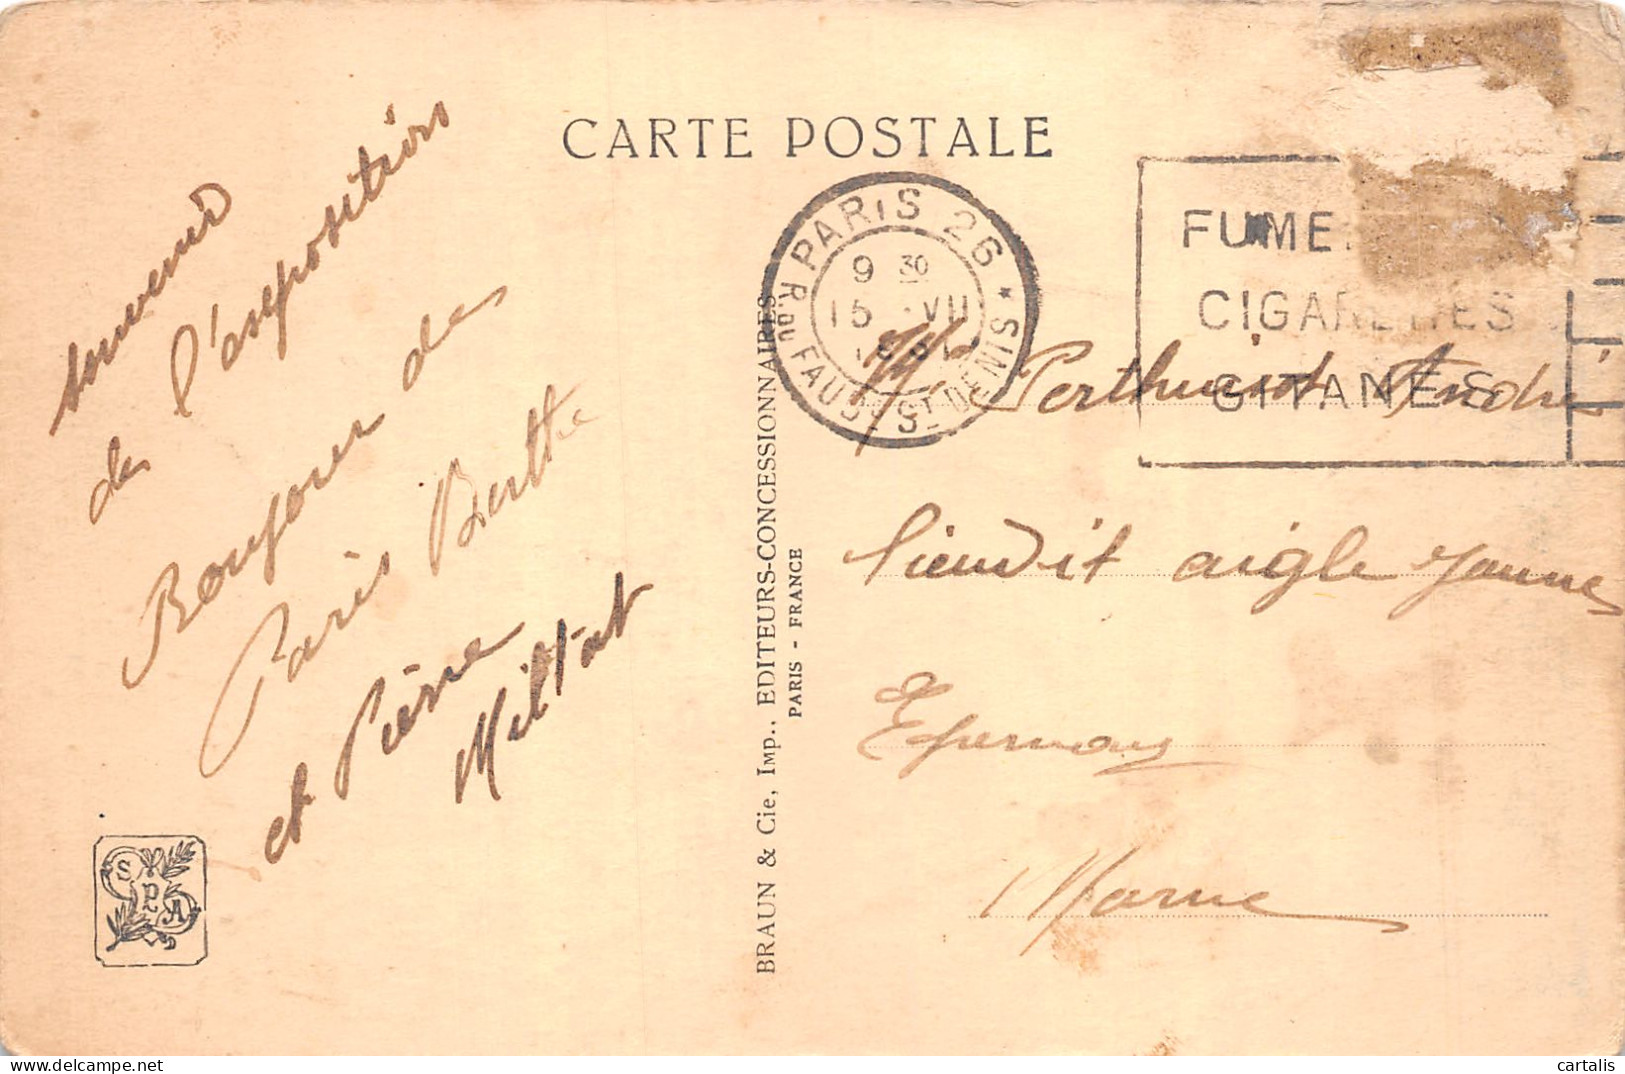 CARTE POSTALE
souvenir
de l'exposition
Bonjour des
Paris Berthe
et Pierre
Miltat
PARIS 26 * SIN
R. DU FAUBG ST DENIS
9 30
15 VII
FUME
CIGARETTES
GITANES
Mr Perthuisot André
lieudit aigle jaune
Epernay
Marne
BRAUN & Cie, Imp., EDITEURS-CONCESSIONNAIRES
PARIS - FRANCE
SPA
cartalis